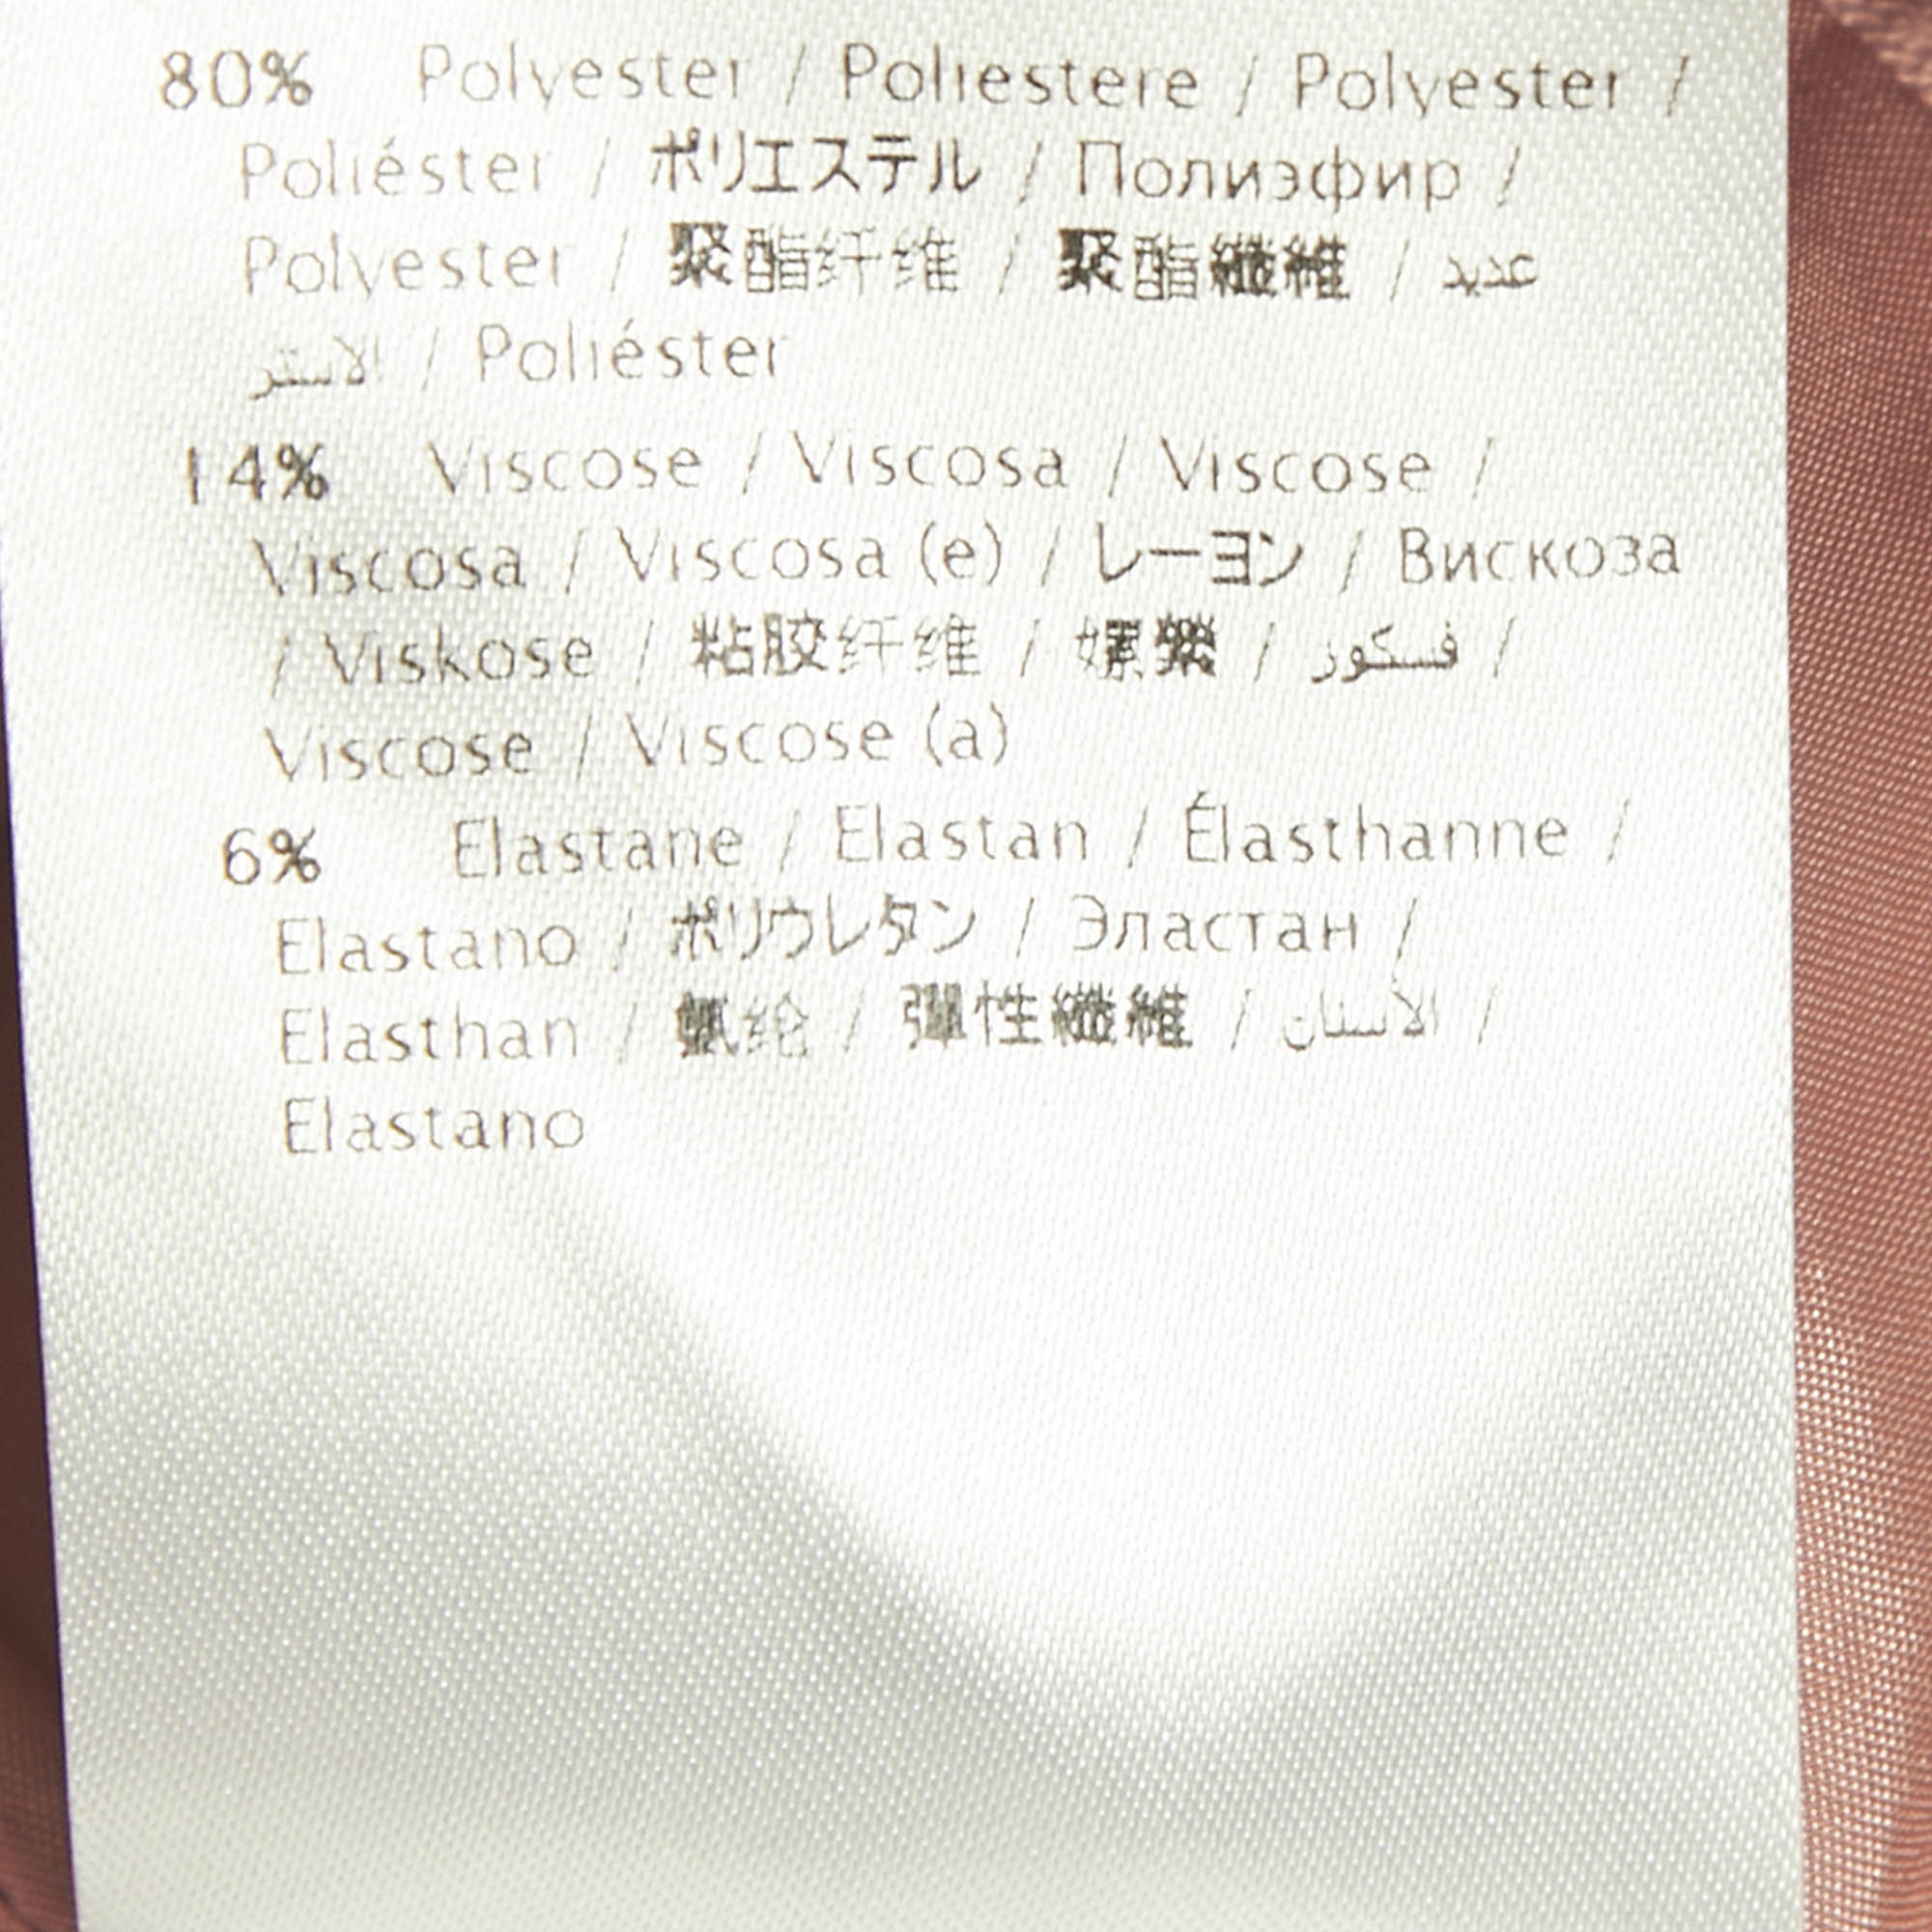 80% Polyester / Poliestere / Polyester /
Poliéster / ポリエステル / Полиэфир /
Polyester / 聚酯纤维 / 聚酯纖維 / عديد
الاستر / Poliéster
14% Viscose / Viscosa / Viscose /
Viscosa / Viscosa (e) / レーヨン / Вискоза
/ Viskose / 粘胶纤维 / 嫘縈 / فسكوز /
Viscose / Viscose (a)
6% Elastane / Elastan / Élasthanne /
Elastano / ポリウレタン / Эластан /
Elasthan / 氨纶 / 彈性纖維 / الأستان /
Elastano